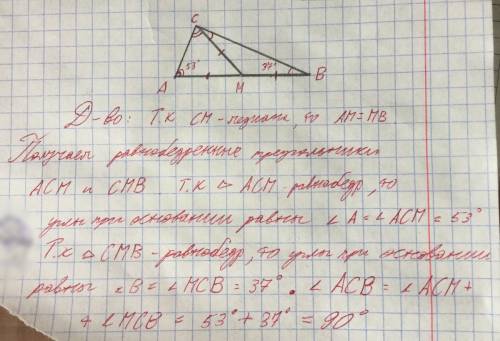 C
53° 37°
A M B
Д-во: Т.к CM - медиана, то AM=MB.
Получаем равнобедренные треугольники
ACM и CMB Т.к ▵ ACM - равнобедр, то
углы при основании равны ∠A = ∠ACM = 53°
Т.к ▵ CMB - равнобедр, то углы при основании
равны ∠B = ∠MCB = 37°. ∠ACB = ∠ACM +
+ ∠MCB = 53° + 37° = 90°